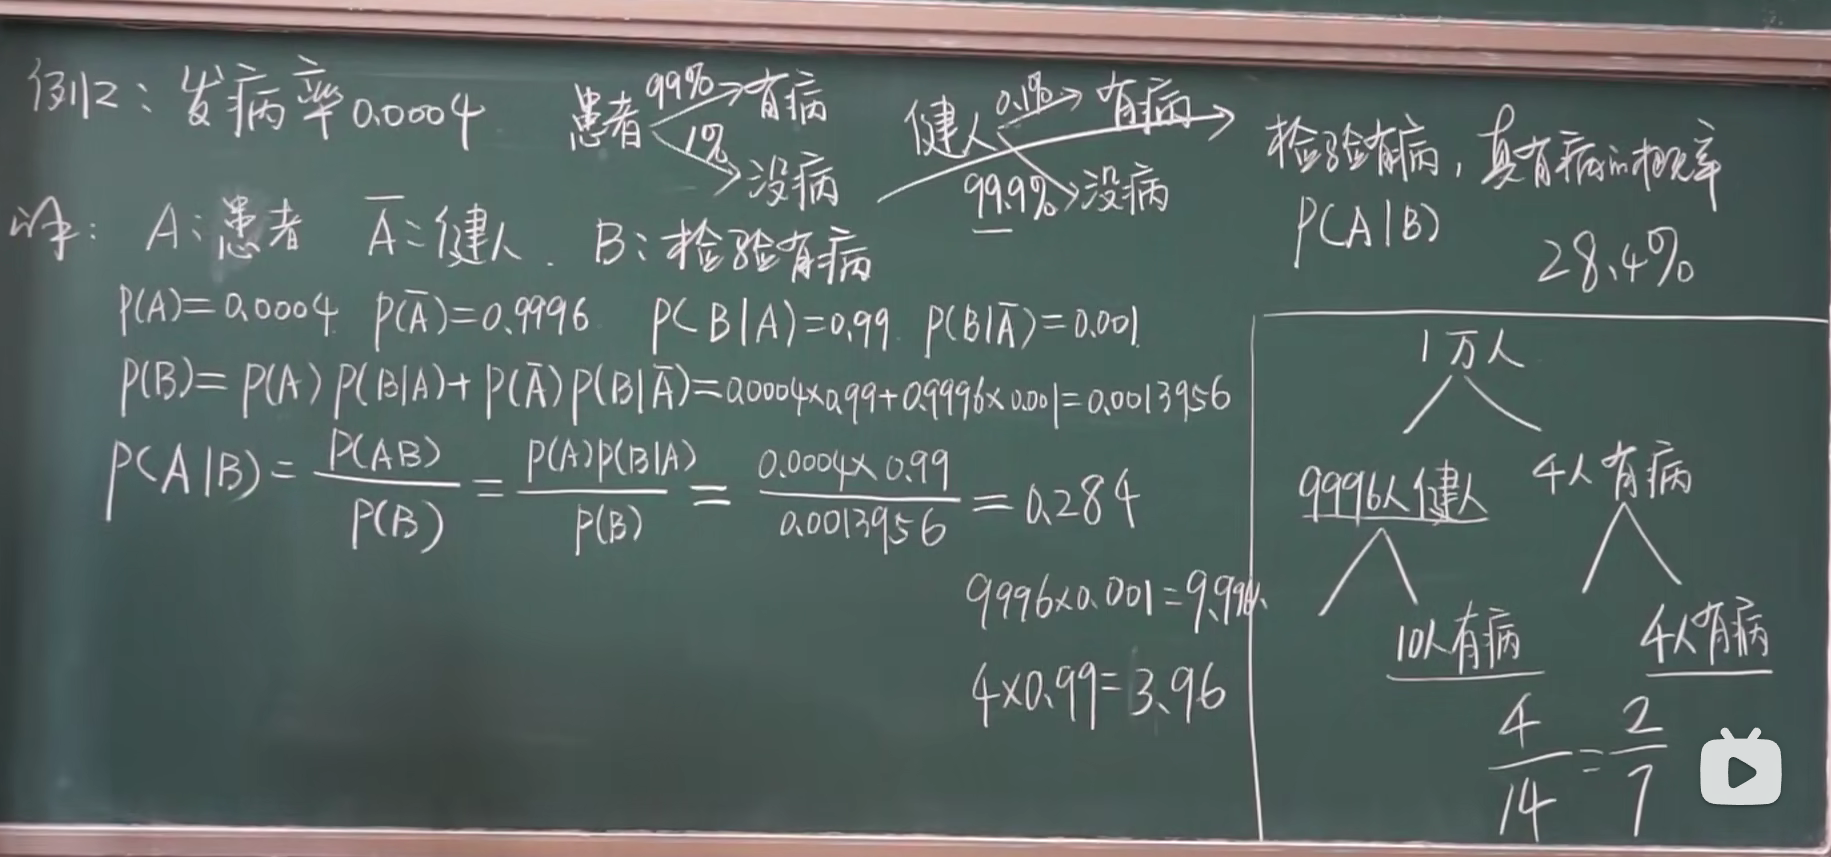 例12：发病率0.0004 患者 99% 有病 1% 没病 健人 0.1% 有病 99.9% 没病
检验有病，真有病的概率
P(A|B) 28.4%
解：A：患者 Ā：健人. B：检验有病
P(A)=0.0004 P(Ā)=0.9996 P(B|A)=0.99 P(B|Ā)=0.001
P(B)=P(A)P(B|A)+P(Ā)P(B|Ā)=0.0004×0.99+0.9996×0.001=0.0013956
P(A|B)=P(AB)/P(B)=P(A)P(B|A)/P(B)=0.0004×0.99/0.0013956=0.284
9996×0.001=9.996
4×0.99=3.96
1万人
9996人健人 4人有病
10人有病 4人有病
4/14=2/7